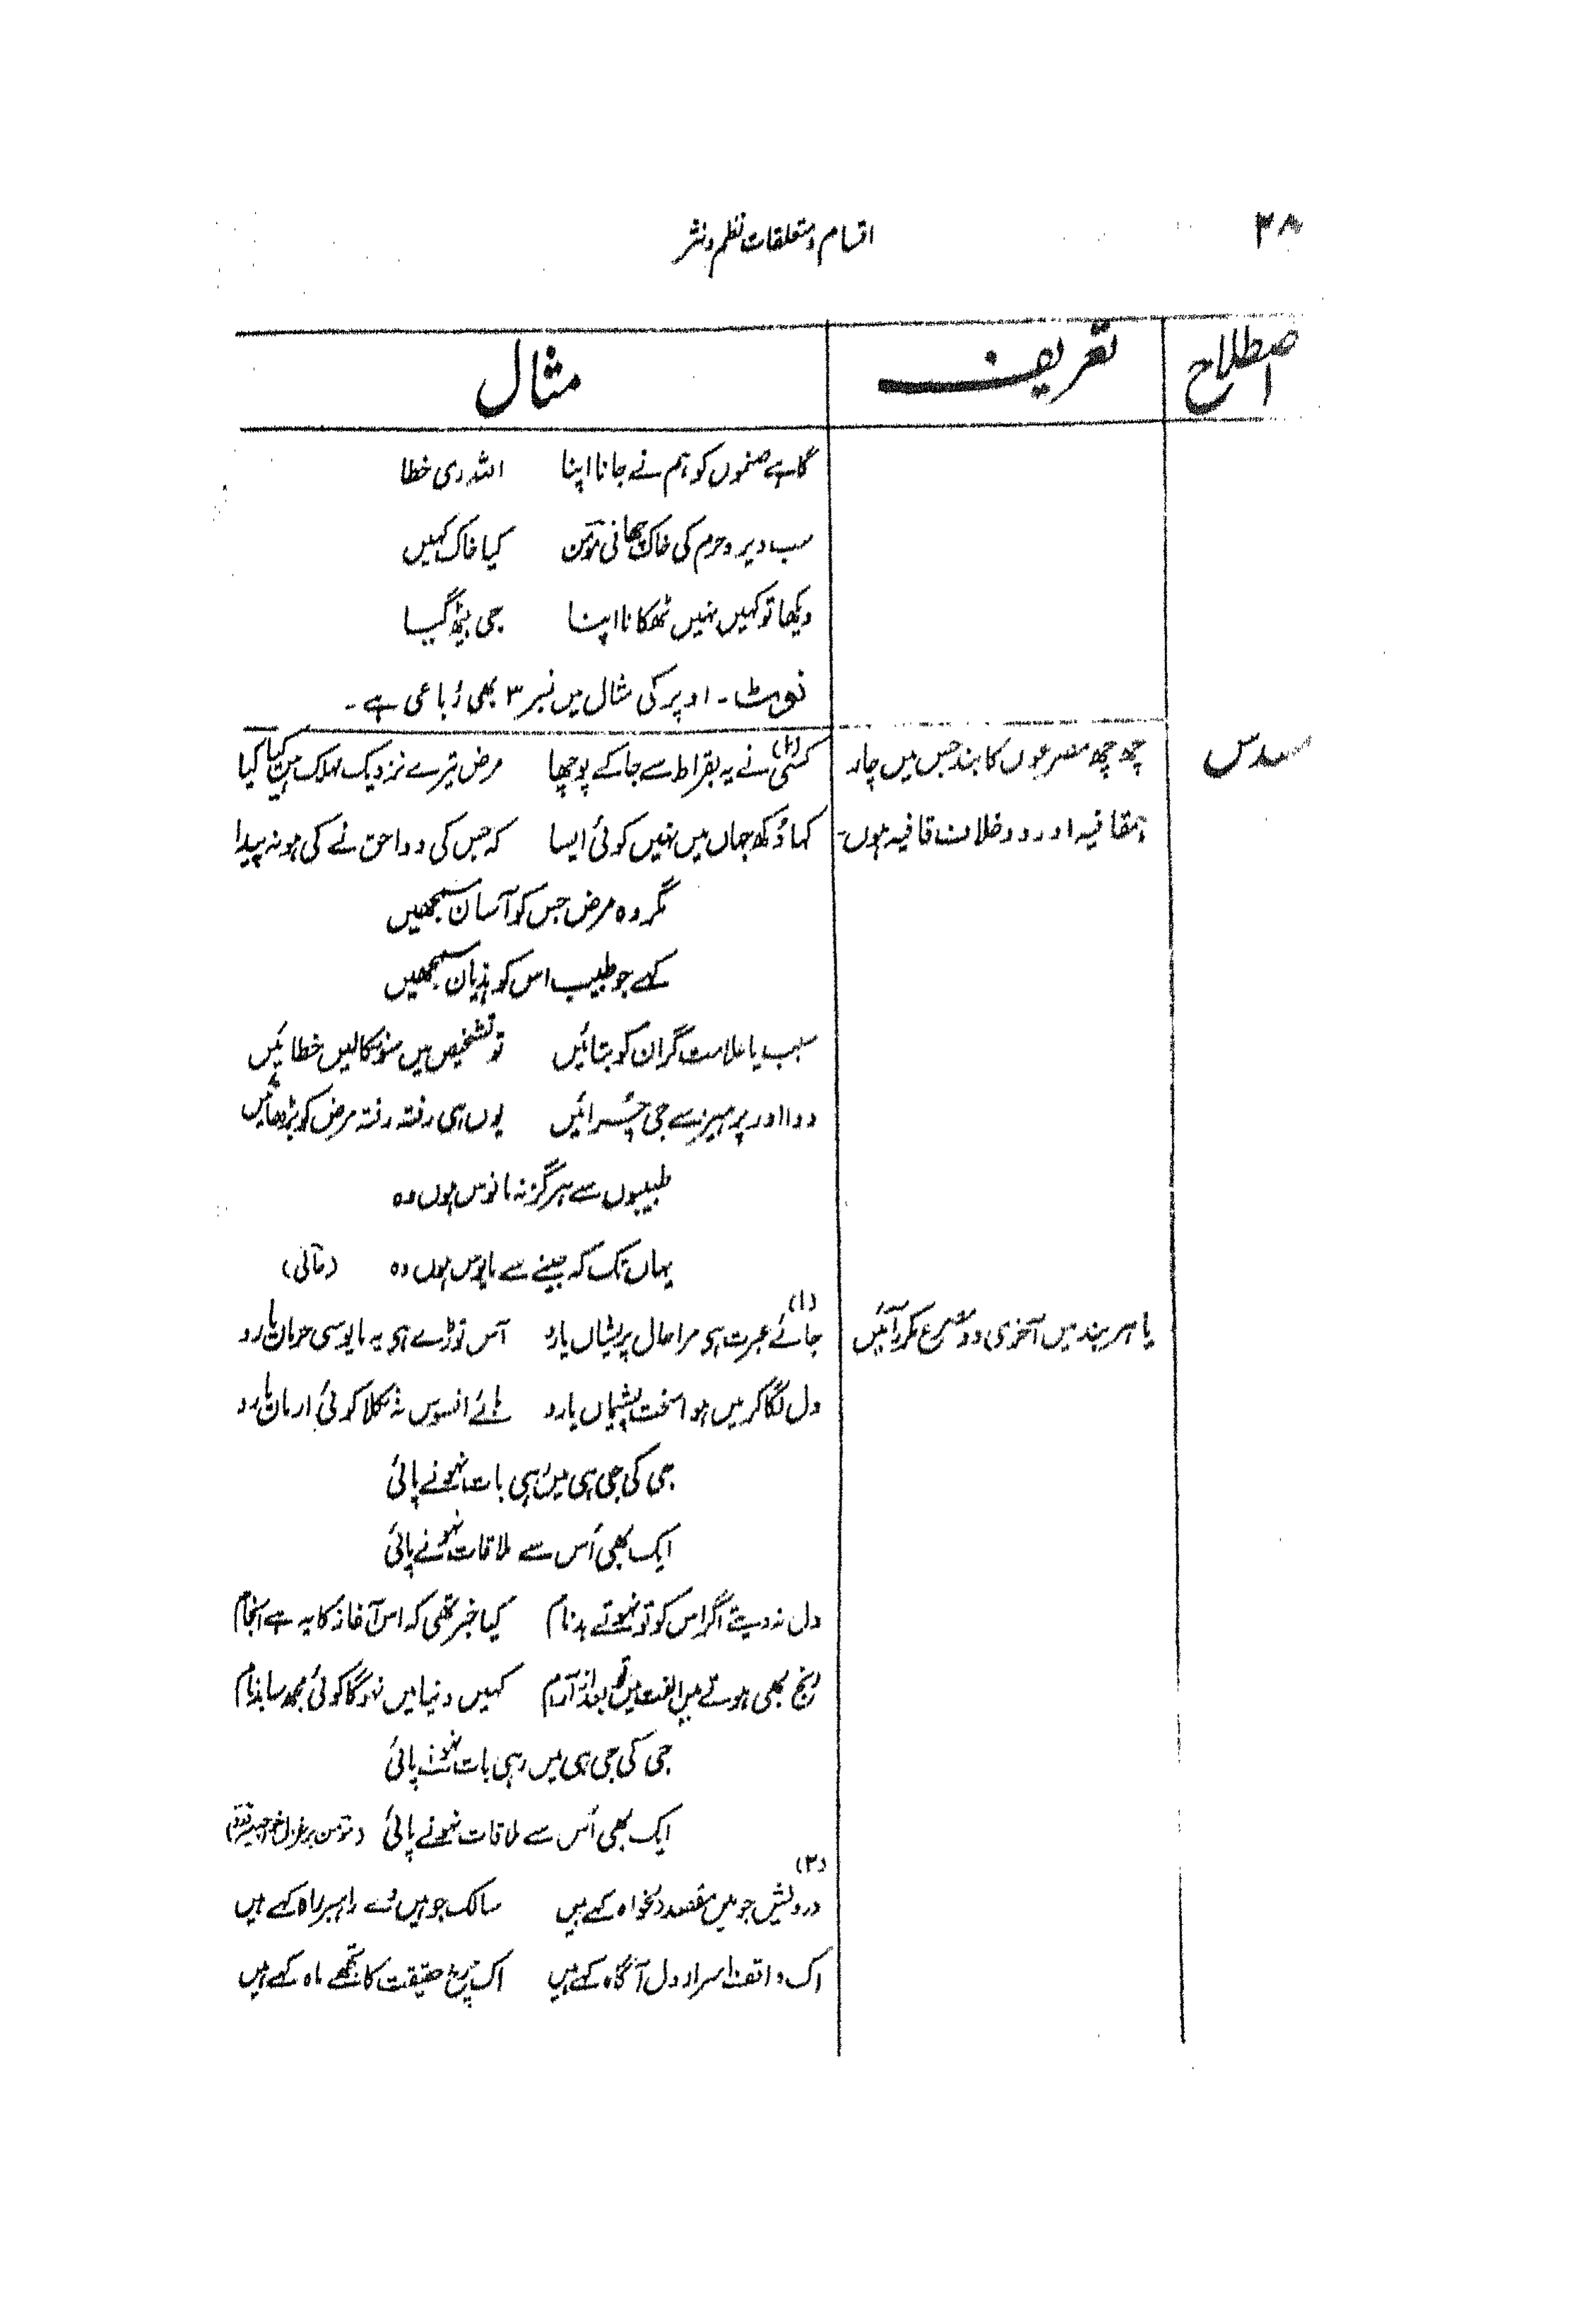 ۳۸
اقسام و متعلقات نظم و نثر
اصطلاح تعریف مثال
گاہے صنموں کو ہم نے جانا اپنا اللہ ری خطا
سب دیر و حرم کی خاک چھانی مومن کیا خاک کہیں
دیکھا تو کہیں نہیں ٹھکانا اپنا جی بیٹھ گیا
نوٹ۔ اوپر کی مثال میں نمبر ۳ بھی رُباعی ہے۔
مسدس
چھ چھ مصرعوں کا بند جس میں چار
ہمقافیہ اور دو خلاف قافیہ ہوں۔
(۱)
کسی نے یہ بقراط سے جا کے پوچھا مرض تیرے نزدیک مہلک ہیں کیا کیا
کہا دُکھ جہاں میں نہیں کوئی ایسا کہ جس کی دوا حق نے کی ہو نہ پیدا
مگر وہ مرض جس کو آسان سمجھیں
کہے جو طبیب اس کو ہذیان سمجھیں
سبب یا علامت گر ان کو بتائیں تو تشخیص میں سو نکالیں خطائیں
دوا اور پرہیز سے جی چُرائیں یوں ہی رفتہ رفتہ مرض کو بڑھائیں
طبیبوں سے ہرگز نہ مانوس ہوں وہ
یہاں تک کہ جینے سے مایوس ہوں وہ (حالی)
یا ہر بند میں آخری دو مصرع مکرر آئیں
(۱)
جائے عبرت ہی مرا حال پریشاں یارو آس توڑے ہی یہ مایوسی حرمان یارو
دل لگا کر میں ہوا سخت پشیماں یارو ہائے افسوس نہ نکلا کوئی ارمان یارو
جی کی جی ہی میں رہی بات نہونے پائی
ایک بھی اُس سے ملاقات نہونے پائی
دل نہ دیتے اگر اس کو تو نہوتے بدنام کیا خبر تھی کہ اس آغاز کا یہ ہے انجام
رنج بھی ہوتے ہیں الفت میں تو بعد از آرام کہیں دنیا میں نہوگا کوئی مجھ سا بدنام
جی کی جی ہی میں رہی بات نہونے پائی
ایک بھی اُس سے ملاقات نہونے پائی (مومن بر غزل
(۲)
درویش جو ہیں مقصد دلخواہ کہے ہیں سالک جو ہیں وے راہبر راہ کہے ہیں
اک واقف اسرار دل آگاہ کہے ہیں اک چرخ حقیقت کا تجھے ماہ کہے ہیں